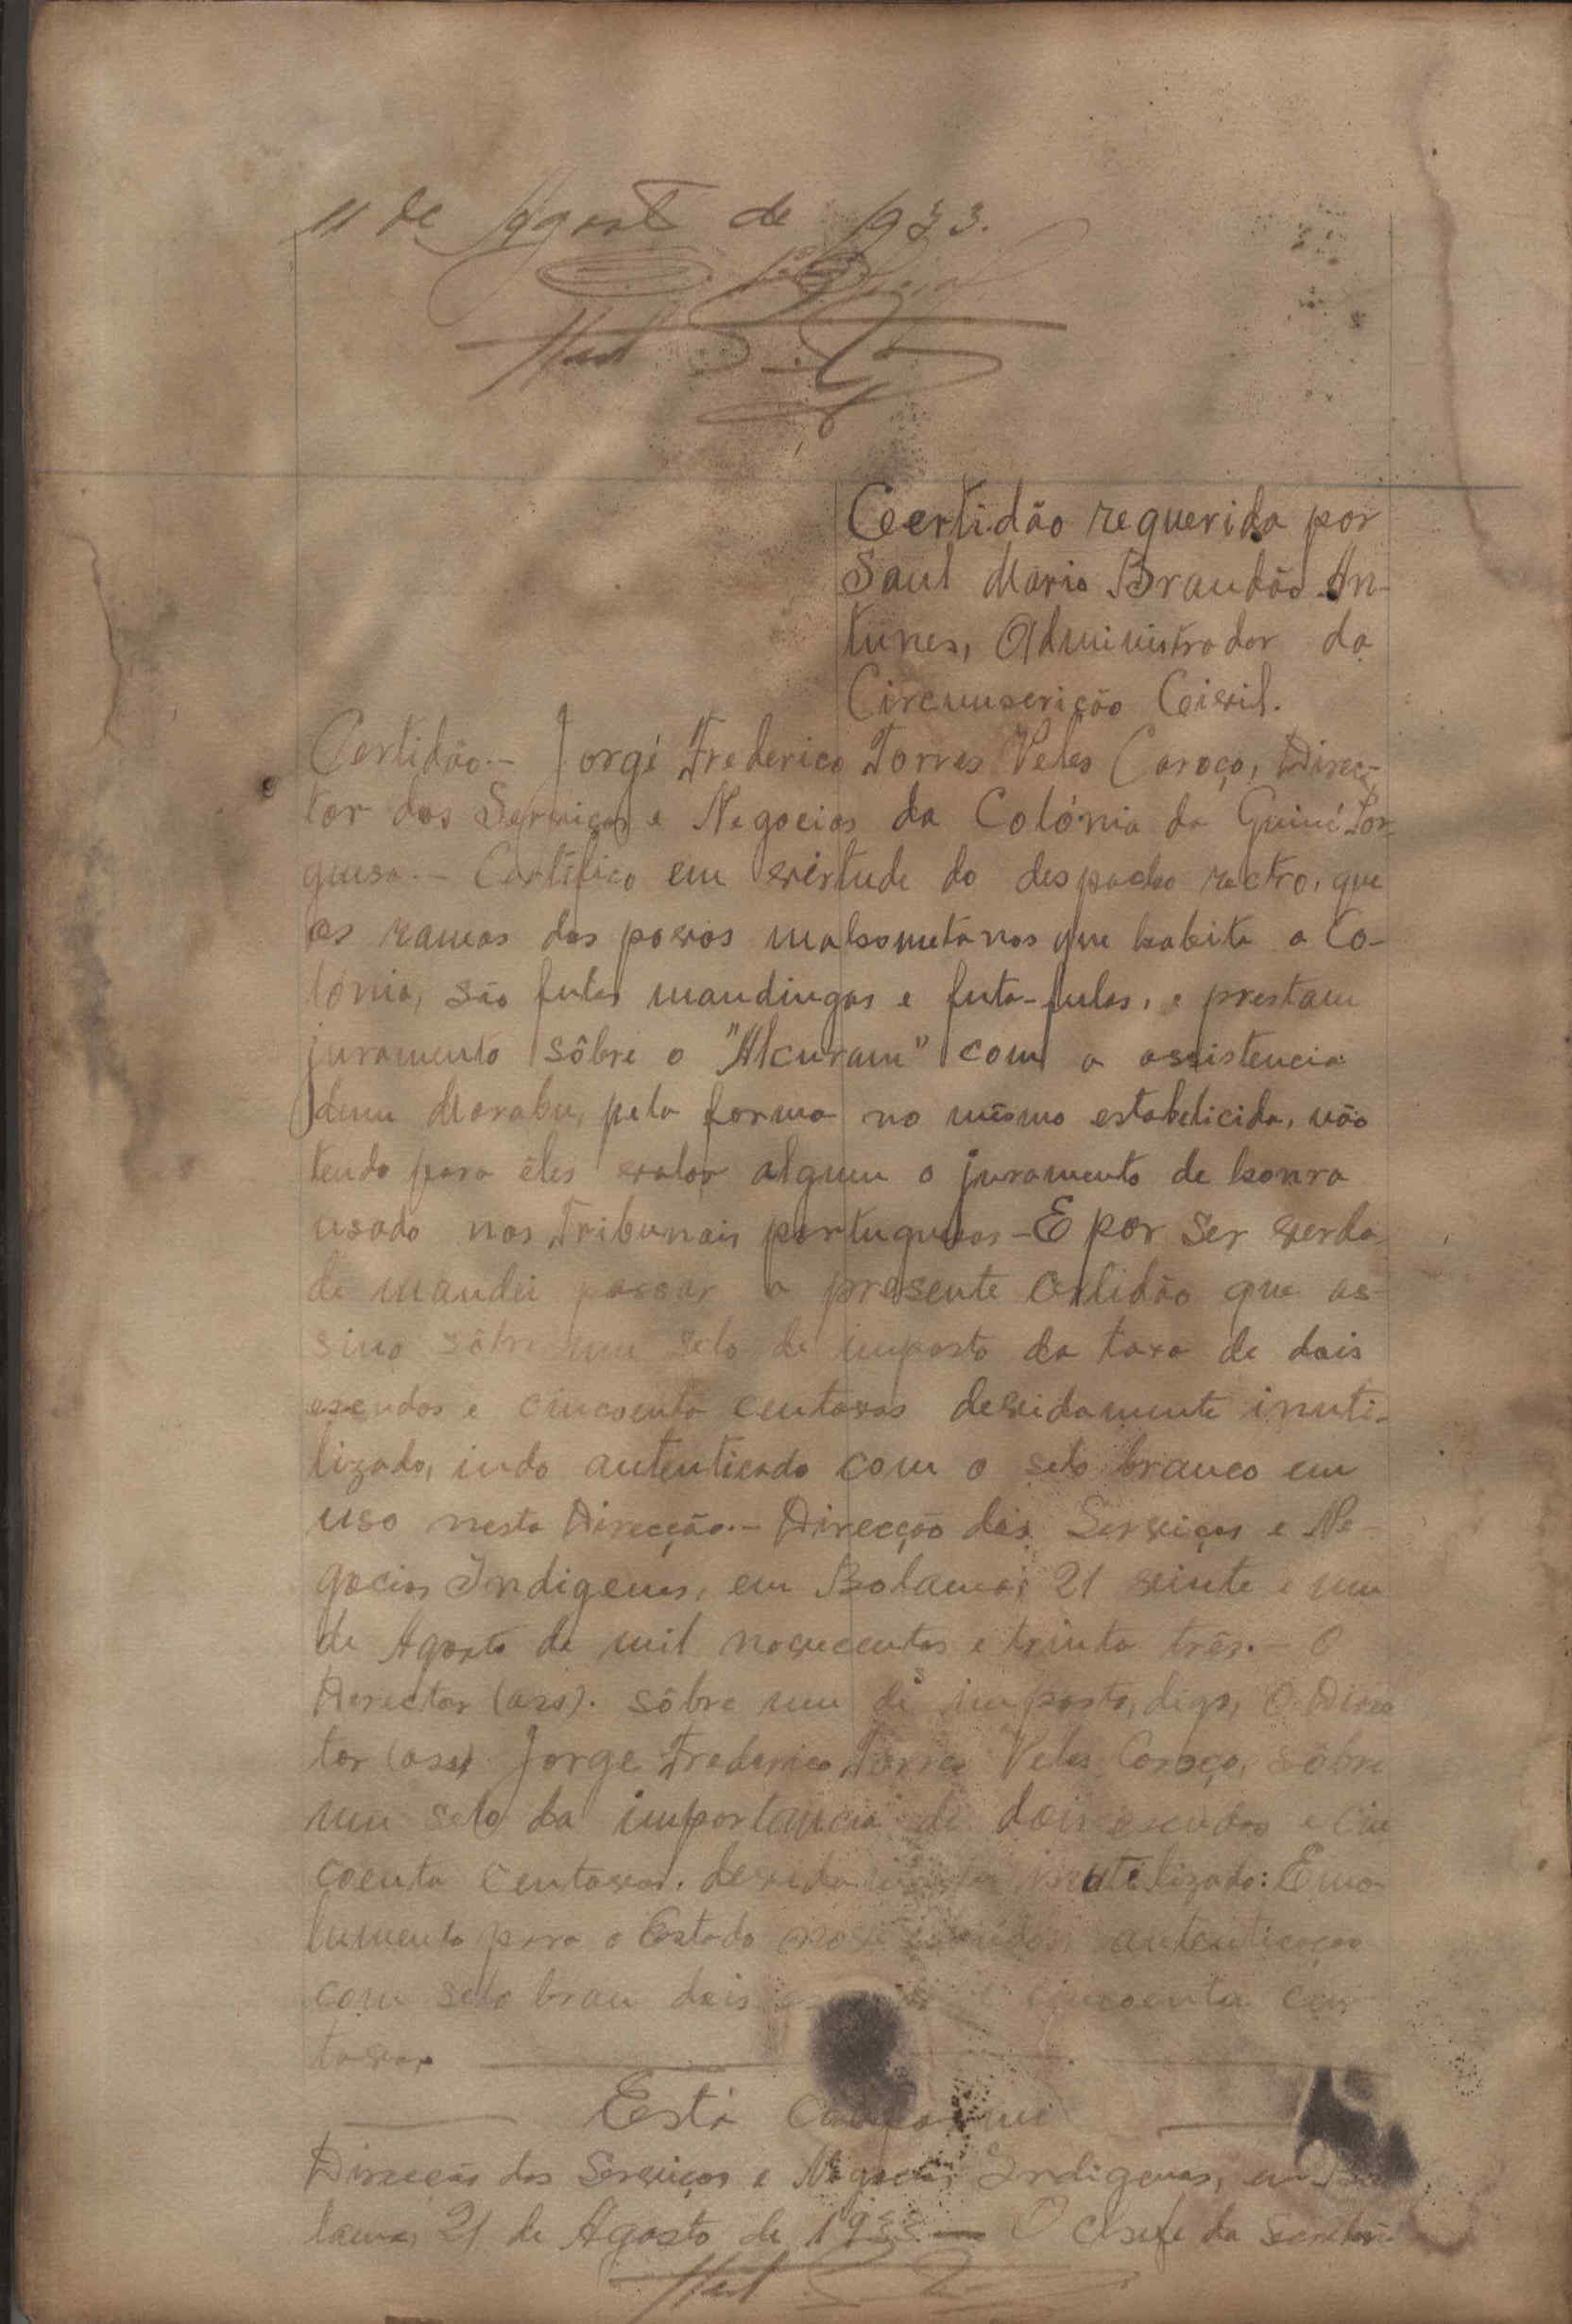 11 de Agosto de 1933.
Certidão requerida por
Saul Mario Brandão An-
tunes, Administrador da
Circunscrição Civil.
Certidão.- Jorge Frederico Torres Veles Caroço, Direc-
tor dos Serviços e Negocios da Colónia da Guiné Por-
guesa.- Certifico em virtude do despacho rectro, que
as ramas dos povos mahometanos que habita a Co-
lónia, são fulas mandingas e futa-fulas, e prestam
juramento sôbre o "Alcuram" com a assistencia
dum Marabu, pela forma no mesmo estabelicida, não
tendo para êles valor algum o juramento de honra
usado nos Tribunais portugueses - E por ser verda-
de mandei passar a presente certidão que as-
sino sôbre um selo de imposto da taxa de dois
escudos e cincoenta centavos devidamente inuti-
lizado, indo autenticada com o selo branco em
uso nesta Direcção.- Direcção dos Serviços e Ne-
gocios Indigenas, em Bolama, 21 vinte e um
de Agosto de mil novecentos e trinta três.- O
Derector (ass). sôbre um de imposto, digo, O Direc
tor (ass) Jorge Frederico Torres Veles Caroço, sôbre
um selo da importancia de dois escudos e cin
coenta centavos. devidamente inutilizado: Emo-
lumento para o Estado autenticação
com selo bran dois cincoenta cen
tavos
Está conforme
Direcção dos Serviços e Negocios Indigenas, em Bo
lama, 21 de Agosto de 1933 — O Chefe da Secretaria